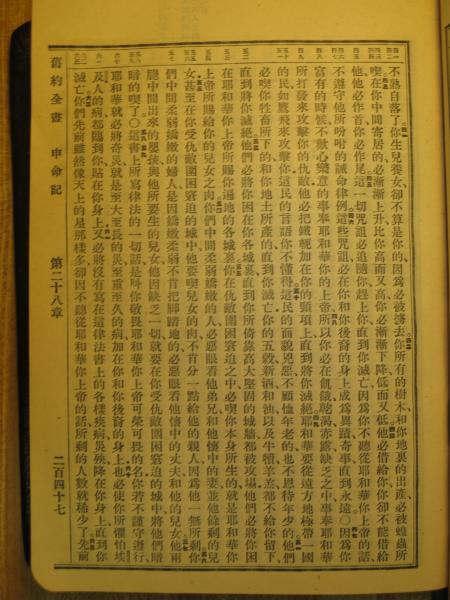 不熟自落了你生兒養女卻不算是你的因爲必被擄去你所有的樹木和你地裏的出產必被蝗蟲所
喫在你中間寄居的必漸漸上升比你高而又高你必漸漸下降低而又低他必借給你你卻不能借給
他他必作首你必作尾這一切咒詛必追隨你趕上你直到你滅亡因爲你不聽從耶和華你上帝的話
不遵守他所吩咐的誡命律例這些咒詛必在你和你後裔的身上成爲異蹟奇事直到永遠○因爲你
富有的時候不歡心樂意的事奉耶和華你的上帝所以你必在飢餓乾渴赤露缺乏之中事奉耶和華
所打發來攻擊你的仇敵他必把鐵軛加在你的頸項上直到將你滅絕耶和華要從遠方地極帶一國
的民如鷹飛來攻擊你這民的言語你不懂得這民的面貌兇惡不顧恤年老的也不恩待年少的他們
必喫你牲畜所下的和你地土所產的直到你滅亡你的五穀新酒和油以及牛犢羊羔都不給你留下
直到將你滅絕他們必將你困在你各城裏直到你所倚靠高大堅固的城牆都被攻塌他們必將你困
在耶和華你上帝所賜你遍地的各城裏你在仇敵圍困窘迫之中必喫你本身所生的就是耶和華你
上帝所賜給你的兒女之肉你們中間柔弱嬌嫩的人必惡眼看他弟兄和他懷中的妻並他餘剩的兒
女甚至在你受仇敵圍困窘迫的城中他要喫兒女的肉不肯分一點給他的親人因爲他一無所剩你
們中間柔弱嬌嫩的婦人是因嬌嫩柔弱不肯把腳踏地的必惡眼看他懷中的丈夫和他的兒女他兩
腿中間出來的嬰孩與他所要生的兒女他因缺乏一切就要在你受仇敵圍困窘迫的城中將他們暗
暗的喫了○這書上所寫律法的一切話是叫你敬畏耶和華你上帝可榮可畏的名你若不謹守遵行
耶和華就必將奇災就是至大至長的災至重至久的病加在你和你後裔的身上也必使你所懼怕埃
及人的病都臨到你貼在你身上又必將沒有寫在這律法書上的各樣疾病災殃降在你身上直到你
滅亡你們先前雖然像天上的星那樣多卻因不聽從耶和華你上帝的話所剩的人數就稀少了先前
舊約全書 申命記 第二十八章 二百四十七